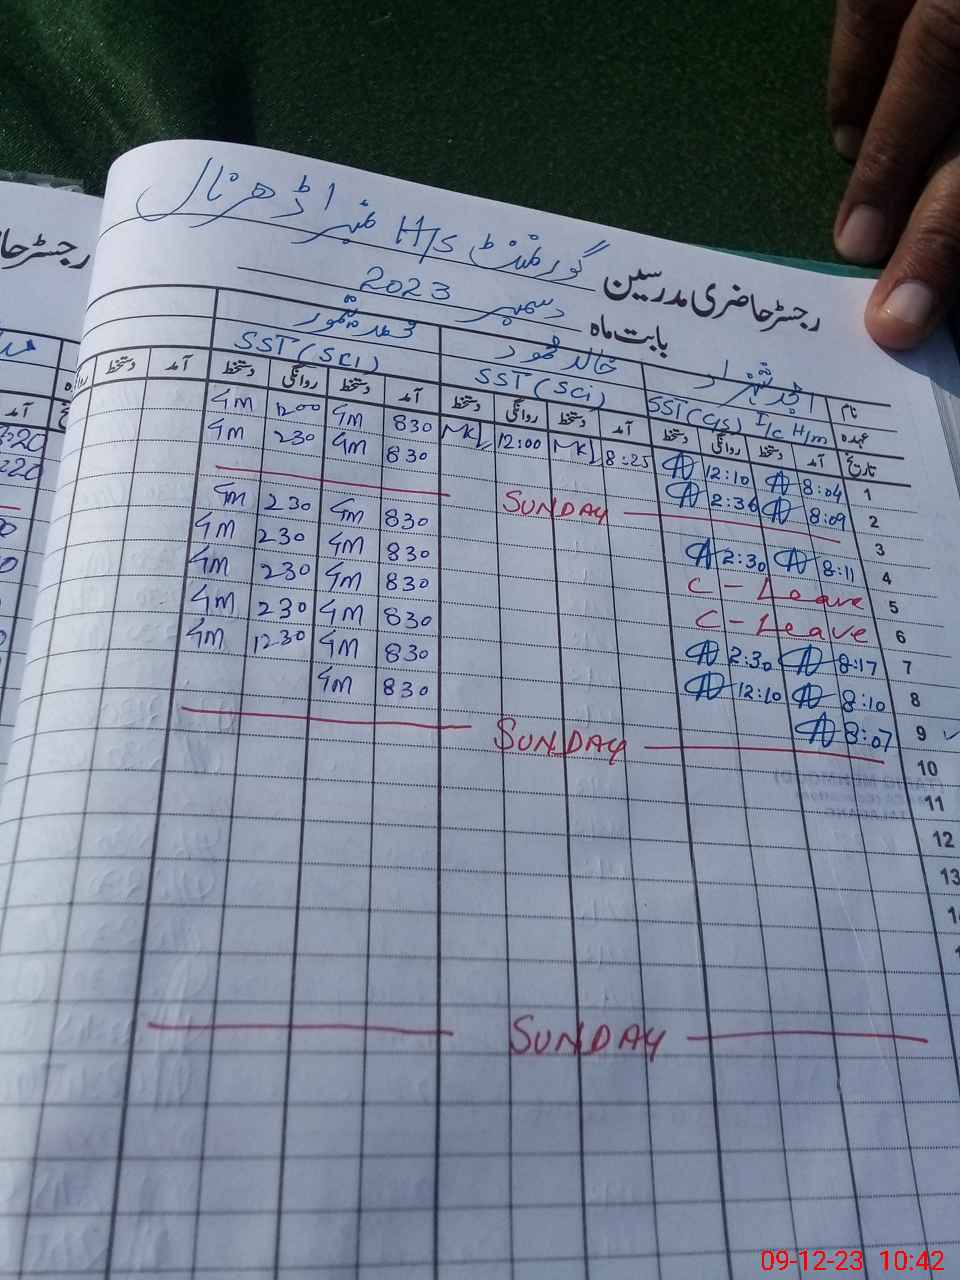 گورنمنٹ H/S نمبر 1 ڈھرنال
رجسٹر حاضری مدرسین
بابت ماہ دسمبر 2023
رجسٹر حا
نام
خالد محمود
عہدہ SST(G/S) I/c H/m SST(Sci) SST(SCI)
تاریخ آمد دستخط روانگی دستخط آمد دستخط روانگی دستخط آمد دستخط روانگی دستخط آمد دستخط
1 8:04 12:10 8:25 MK 12:00 MK 830 4m 1200 4m
2 8:09 2:36 830 4m 230 4m
3 SUNDAY
4 8:11 2:30 830 4m 230 4m
5 C-Leave 830 4m 230 4m
6 C-Leave 830 4m 230 4m
7 8:17 2:30 830 4m 230 4m
8 8:10 12:10 830 4m 1230 4m
9 8:07 830 4m
10 SUNDAY
11
12
13
SUNDAY
09-12-23 10:42